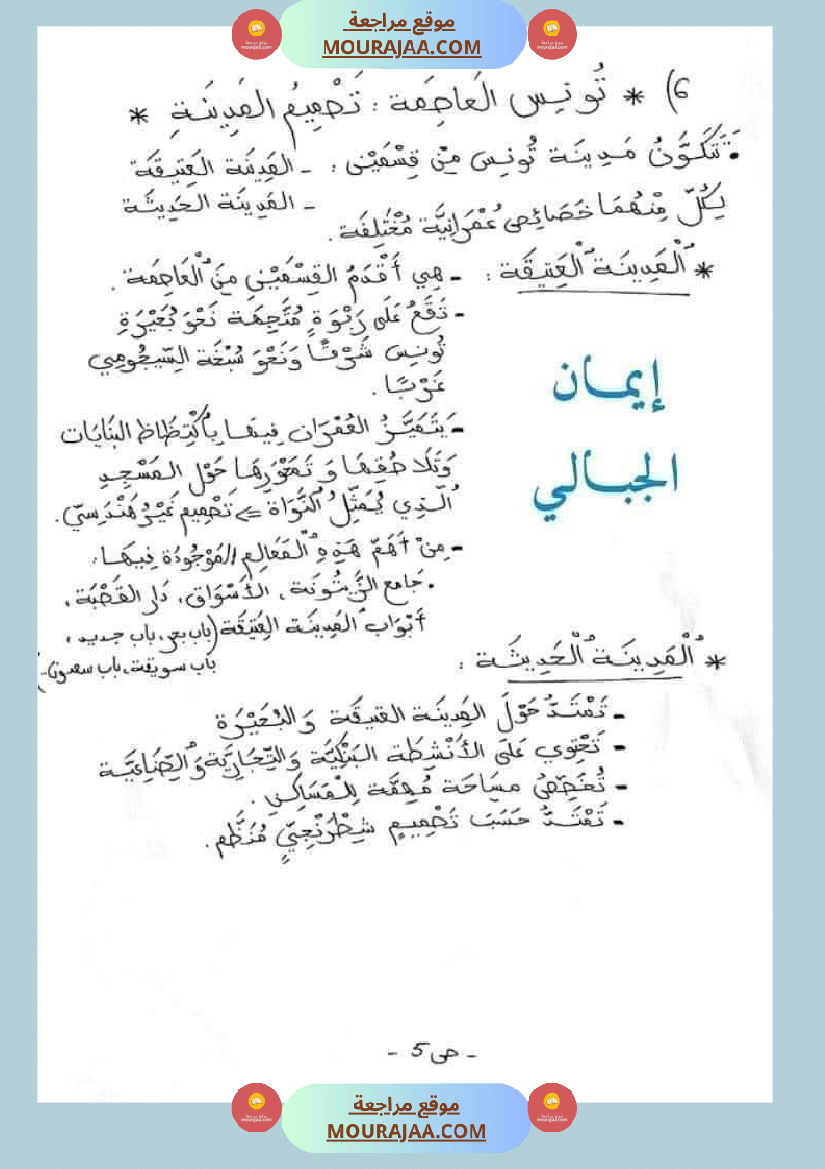 موقع مراجعة
MOURAJAA.COM
6) * تُونِس الْعَاصِمَة : تَصْمِيمُ المَدِينَةِ *
• تَتَكَوَّنُ مَدِينَة تُونِس مِنْ قِسْمَيْنِ : - المَدِينَة العَتِيقَة
- المَدِينَة الحَدِيثَة
لِكُلّ مِنْهُمَا خَصَائِص عُمْرَانِيَّة مُخْتَلِفَة.
* الْمَدِينَة الْعَتِيقَة : - هِي أَقْدَمُ القِسْمَيْنِ مِنَ الْعَاصِمَة.
- تَقَعُ عَلَى رَبْوَةٍ مُتَّجِهَة نَحْوَ بُحَيْرَةِ
تُونِس شَرْقًا وَنَحْوَ سَبْخَة السِّيجُومِي
غَرْبًا.
إيمان
الجبالي
- يَتَمَيَّزُ العُمْرَان فِيهَا بِاكْتِظَاظ البِنَايَات
وَتَلَاصُقِهَا وَ تَمَحْوُرِهَا حَوْلَ المَسْجِدِ
الَّذِي يُمَثِّلُ النَّوَاة => تَصْمِيم غَيْرُ هَنْدَسِيّ.
- مِنْ أَهَمّ هَذِهِ الْمَعَالِم المَوْجُودَة فِيهَا:
. جَامع الزَّيْتُونَة، الأَسْوَاق، دَار القَصْبَة،
أَبْوَاب المَدِينَة العَتِيقَة (باب بحر، باب جديد،
باب سويقة، باب سعدون)
* الْمَدِينَة الْحَدِيثَة :
- تَمْتَدُّ حَوْلَ المَدِينَة العَتِيقَة وَ البُحَيْرَة
- تَحْتَوِي عَلَى الأَنْشِطَة البَنْكِيَّة وَالتِّجَارِيَّة وَالصِّنَاعِيَّة
- تُخَصِّصُ مِسَاحَة مُهِمَّة لِلْمَسَاكِنِ.
- تَمْتَدُّ حَسَبَ تَصْمِيمٍ شِطْرَنْجِيٍّ مُنَظَّم.
- ص 5 -
موقع مراجعة
MOURAJAA.COM